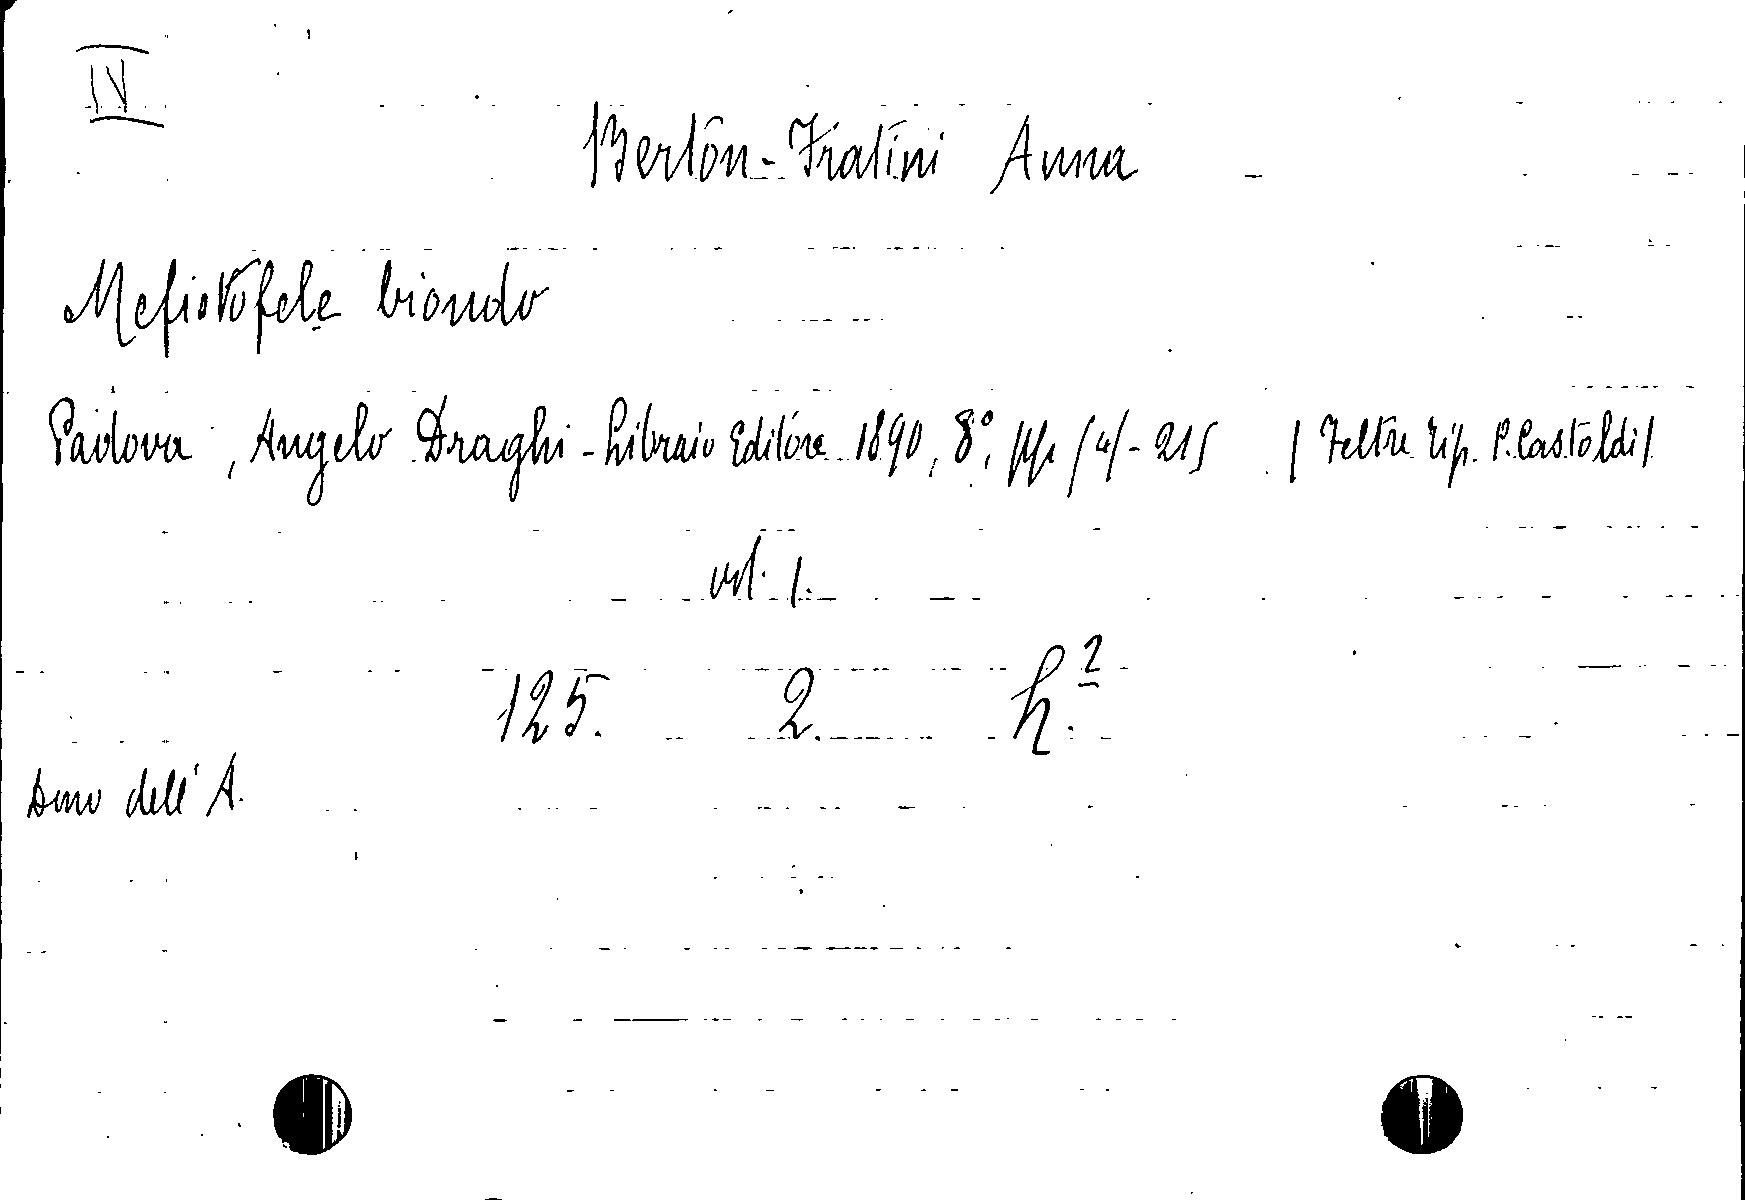 IV
Berton-Fratini Anna
Mefistofele biondo
Padova, Angelo Draghi-Libraio Editore 1890, 8°, pp. /4/-215 / Feltre Tip. P. Castoldi /
vol. 1.
125. 2. h.2
Dono dell'A.